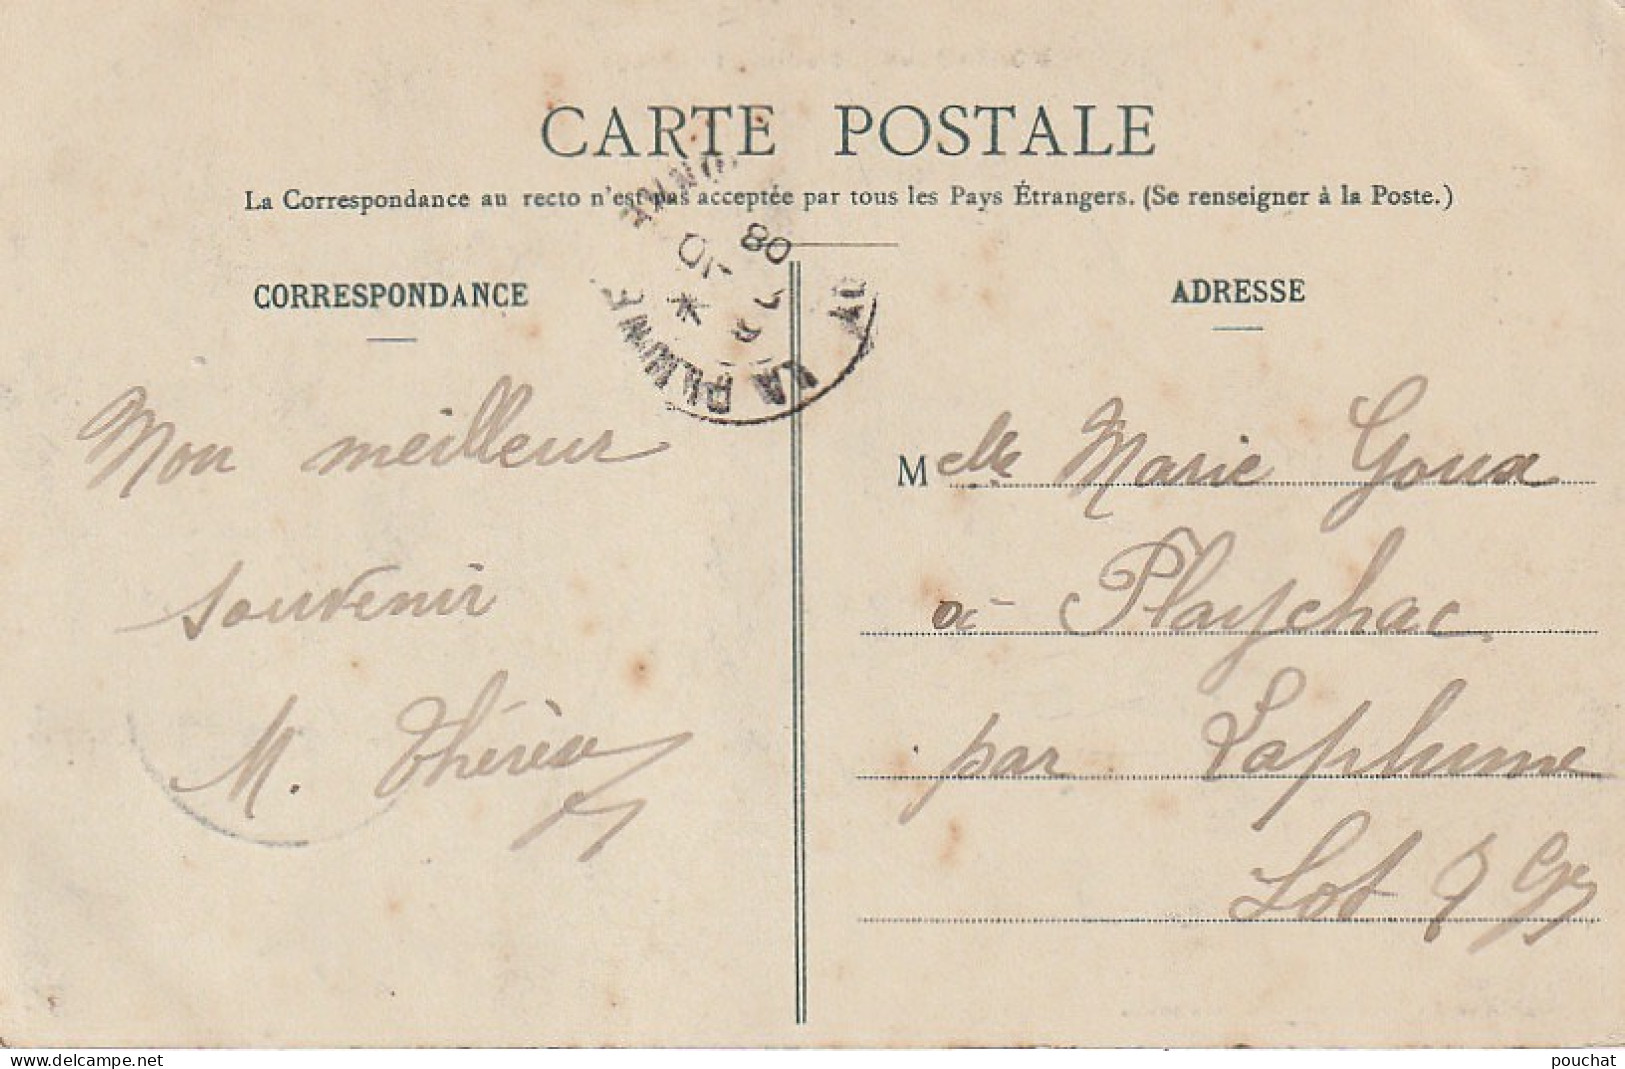 CARTE POSTALE
La Correspondance au recto n'est pas acceptée par tous les Pays Étrangers. (Se renseigner à la Poste.)
CORRESPONDANCE
Mon meilleur
souvenir
M. Thérèse
08
10
LA PLUME
ADRESSE
Melle Marie Goux
à Playchac
par Laplume
Lot & G
www.delcampe.net
pouchat